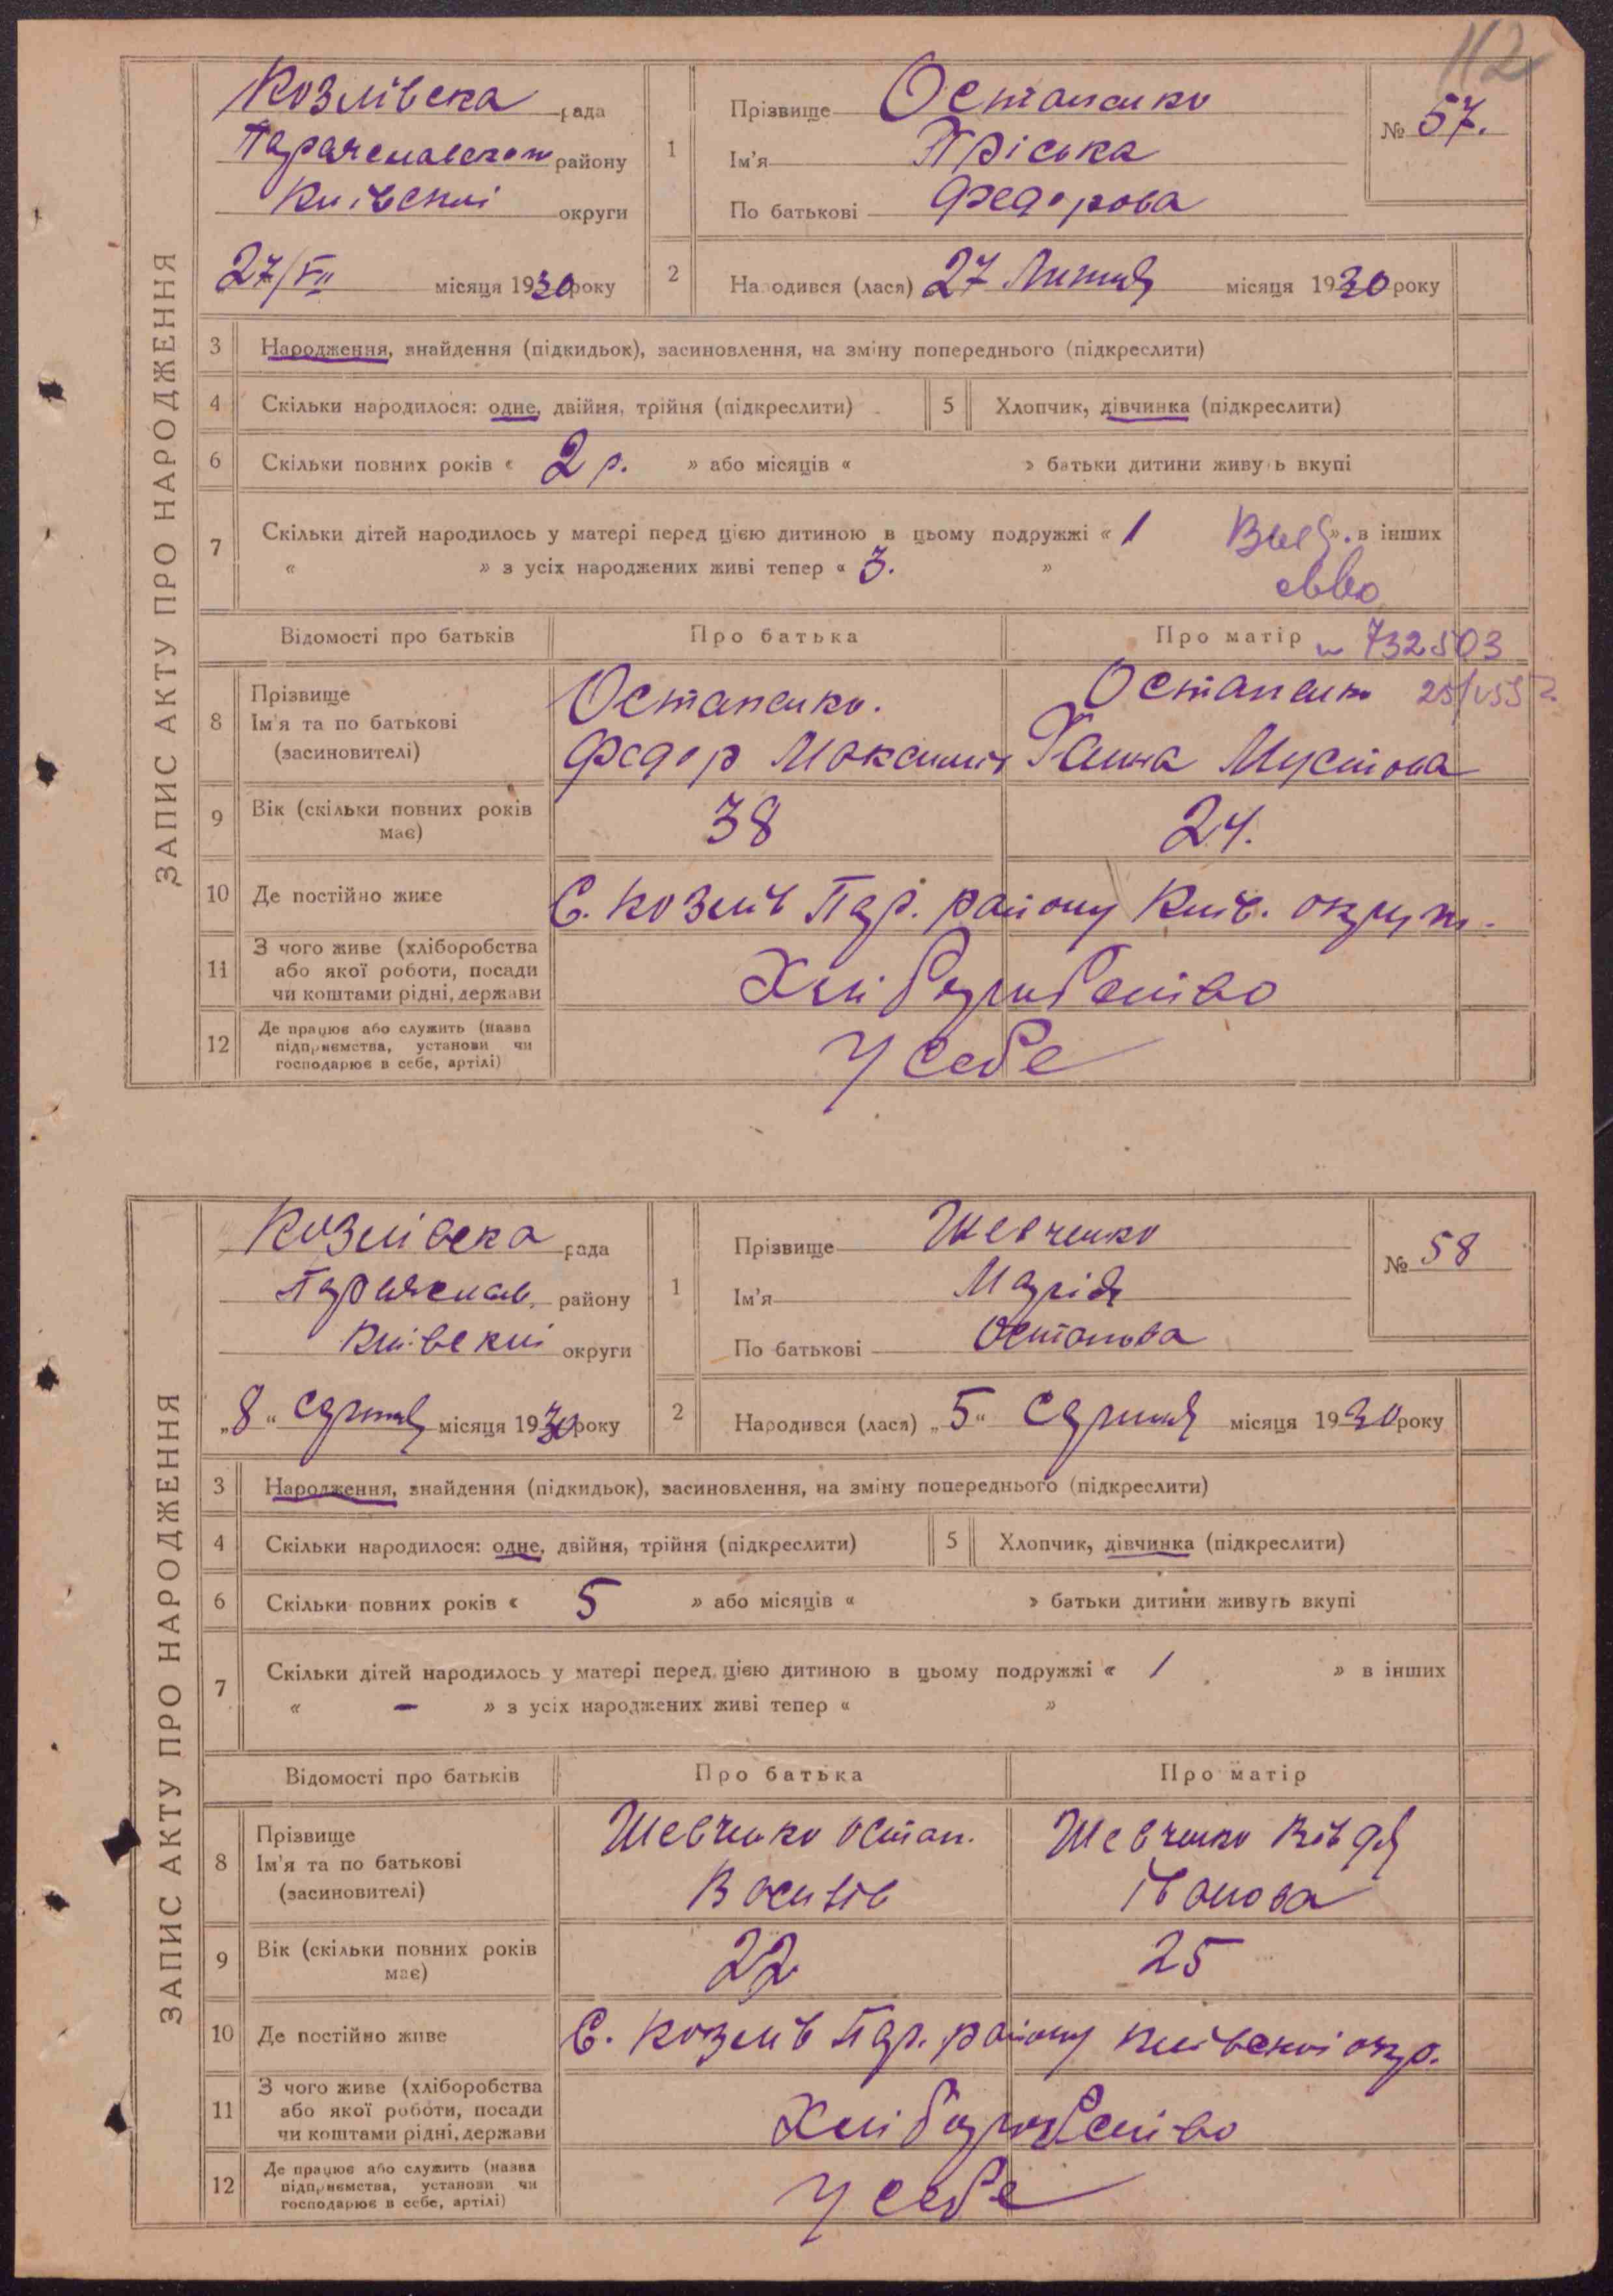 112
ЗАПИС АКТУ ПРО НАРОДЖЕННЯ
Козлівска рада
району
Київскої округи
27/VII місяця 1930 року
1
Прізвище Остапенко
Ім'я Пріська
По батькові Федорова
№ 57.
2
Народився (лася) 27 Липня місяця 1930 року
3 Народження, знайдення (підкидьок), засиновлення, на зміну попереднього (підкреслити)
4 Скільки народилося: одне, двійня, трійня (підкреслити)
5 Хлопчик, дівчинка (підкреслити)
6 Скільки повних років « 2 р. » або місяців « » батьки дитини живуть вкупі
7 Скільки дітей народилось у матері перед цією дитиною в цьому подружжі « 1 ». в інших
« » з усіх народжених живі тепер « 3. »
Відомості про батьків Про батька Про матір
732503
8 Прізвище
Ім'я та по батькові
(засиновителі)
Остапенко.
Федор Максимів
Остапенко
Ганна
9 Вік (скільки повних років
має)
38
24.
10 Де постійно живе
С. Козлів Пер. району Київ. округи.
11 З чого живе (хліборобства
або якої роботи, посади
чи коштами рідні, держави
Хліборобство
12 Де працює або служить (назва
підприємства, установи чи
господарює в себе, артілі)
У себе
ЗАПИС АКТУ ПРО НАРОДЖЕННЯ
Козлівска рада
району
Київскої округи
„8“ Серпня місяця 1930 року
1
Прізвище Шевченко
Ім'я Марія
По батькові Остапова
№ 58
2
Народився (лася) „5“ Серпня місяця 1930 року
3 Народження, знайдення (підкидьок), засиновлення, на зміну попереднього (підкреслити)
4 Скільки народилося: одне, двійня, трійня (підкреслити)
5 Хлопчик, дівчинка (підкреслити)
6 Скільки повних років « 5 » або місяців « » батьки дитини живуть вкупі
7 Скільки дітей народилось у матері перед цією дитиною в цьому подружжі « 1 » в інших
« – » з усіх народжених живі тепер « »
Відомості про батьків Про батька Про матір
8 Прізвище
Ім'я та по батькові
(засиновителі)
Шевченко Остап.
Василів
Шевченко Явдя
Іванова
9 Вік (скільки повних років
має)
22
25
10 Де постійно живе
С. Козлів Пер. району Київскої окр.
11 З чого живе (хліборобства
або якої роботи, посади
чи коштами рідні, держави
Хліборобство
12 Де працює або служить (назва
підприємства, установи чи
господарює в себе, артілі)
У себе